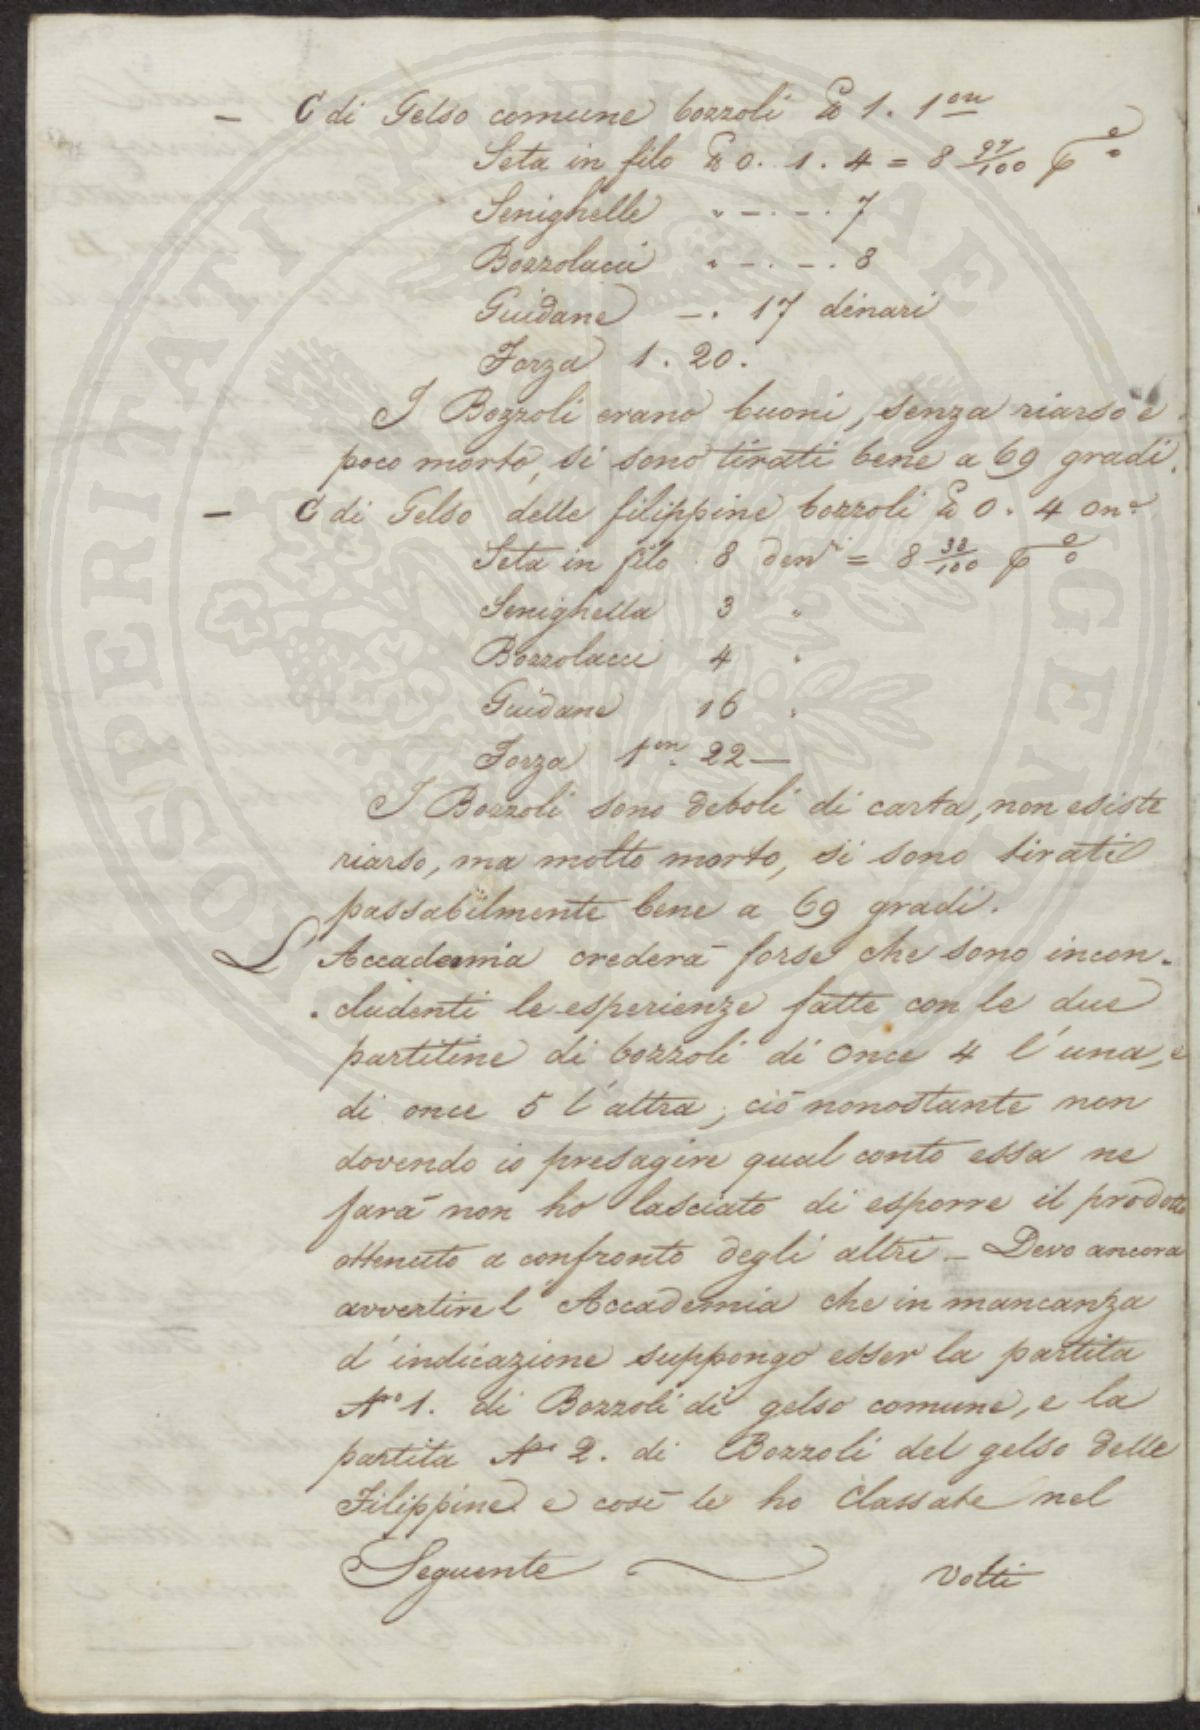 – C di Gelso comune bozzoli ℔ 1. 1 on
Seta in filo ℔ 0. 1. 4 = 8 97/100 p %
Senighelle " – . – . 7
Bozzolacci " – . – . 8
Guidane – . 17 dinari
Forza 1. 20.
I Bozzoli erano buoni, senza riarso e
poco morto, si sono tirati bene a 69 gradi.
– C di Gelso delle filippine bozzoli ℔ 0. 4 on.e
Seta in filo 8 den.i = 8 38/100 p %
Senighella 3 "
Bozzolacci 4 "
Guidane 16 "
Forza 1 on. 22 –
I Bozzoli sono deboli di carta, non esiste
riarso, ma molto morto, si sono tirati
passabilmente bene a 69 gradi.
L'Accademia crederà forse che sono incon-
-cludenti le esperienze fatte con le due
partitine di bozzoli di Once 4 l'una, e
di once 5 l'altra; ciò nonostante non
dovendo io presagire qual conto essa ne
farà non ho lasciato di esporre il prodotto
ottenuto a confronto degli altri – Devo ancora
avvertire l'Accademia che in mancanza
d'indicazione suppongo esser la partita
N.o 1. di Bozzoli di gelso comune, e la
partita N.o 2. di Bozzoli del gelso delle
Filippine e così le ho classate nel
Seguente Volti
PROSPERITATI PUBLICAE AUGENDAE